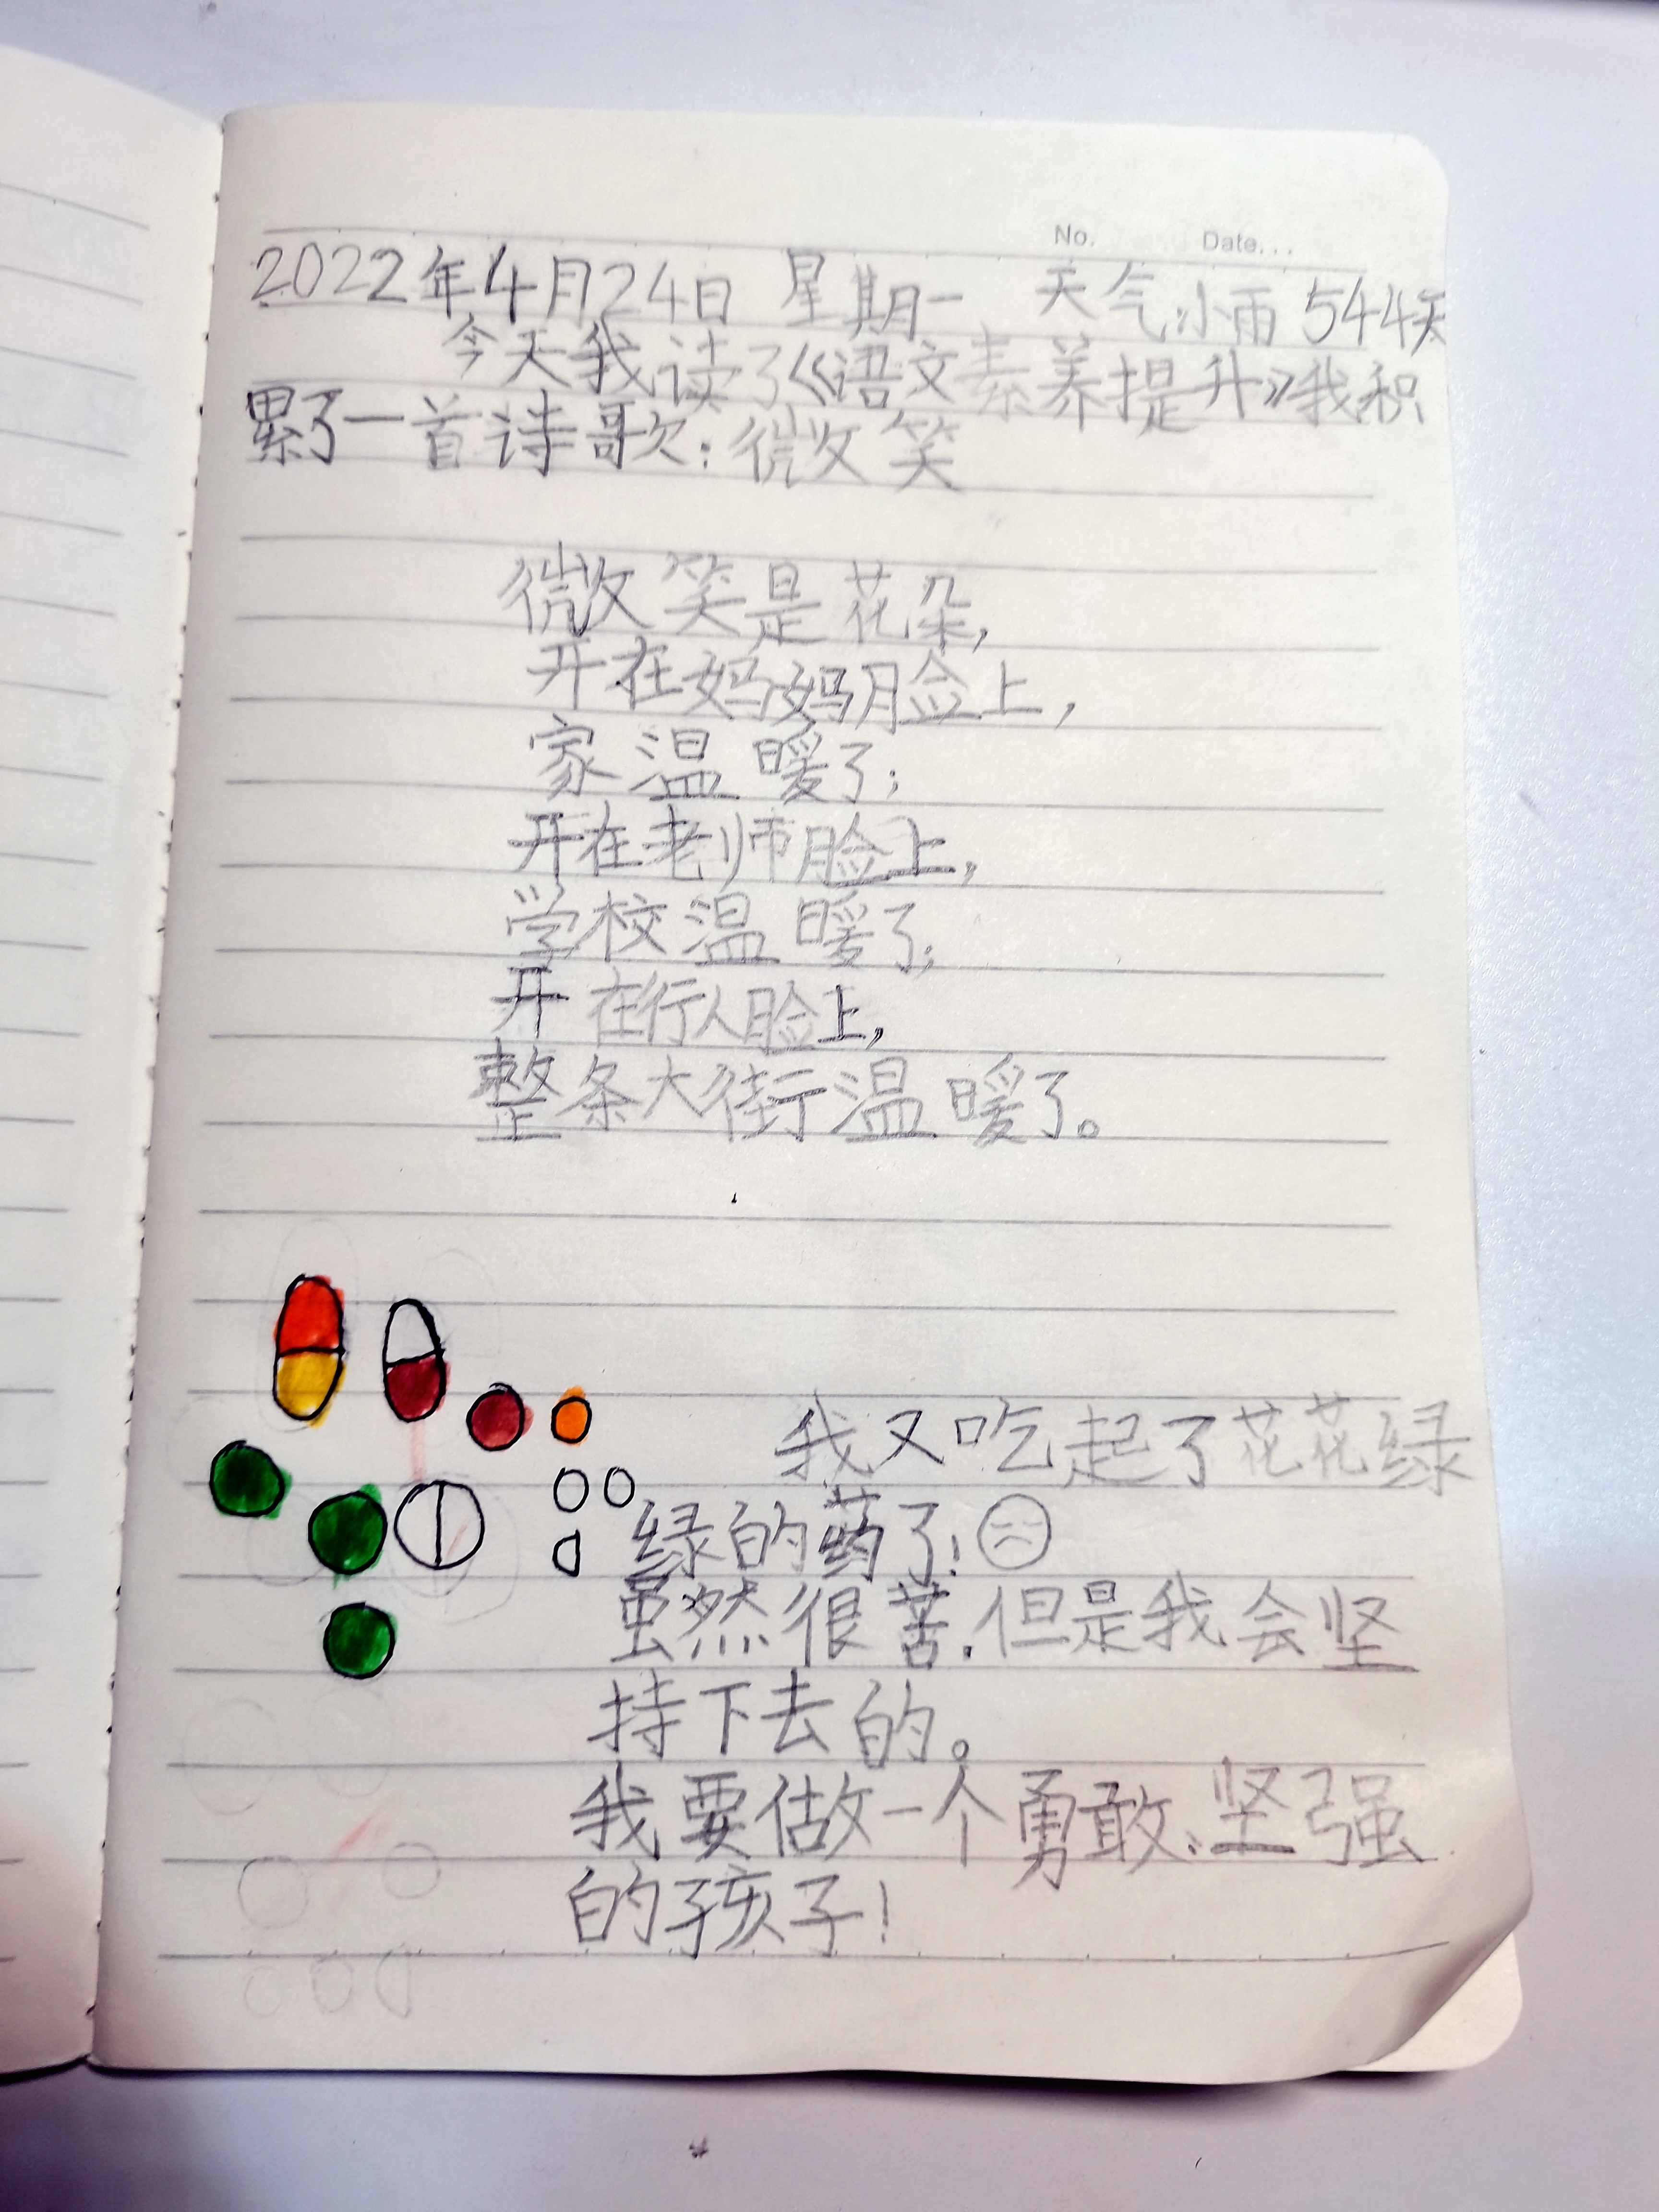 No. Date...
2022年4月24日 星期一 天气:小雨 544天
今天我读了《语文素养提升》我积
累了一首诗歌:微笑
微笑是花朵,
开在妈妈脸上,
家温暖了;
开在老师脸上,
学校温暖了;
开在行人脸上,
整条大街温暖了。
我又吃起了花花绿
绿的药了!
虽然很苦,但是我会坚
持下去的。
我要做一个勇敢、坚强
的孩子!